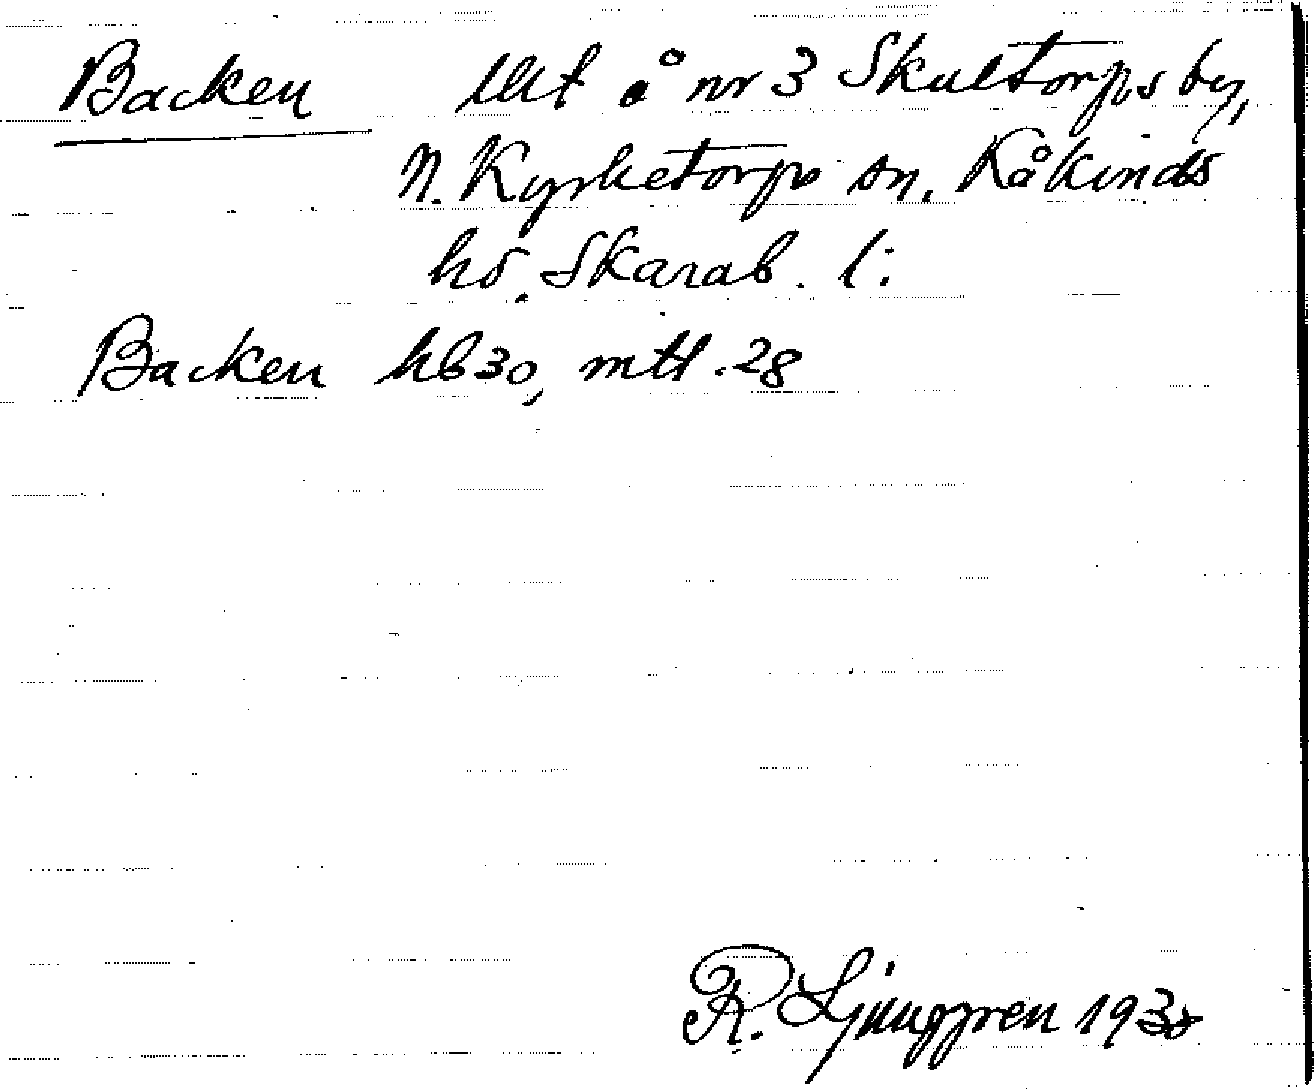 Backen lht å nr 3 Skultorps by,
N. Kyrketorps sn, Kåkinds
hd. Skarab. l:
Backen hb 30, mtl. 28
R. Ljunggren 1930